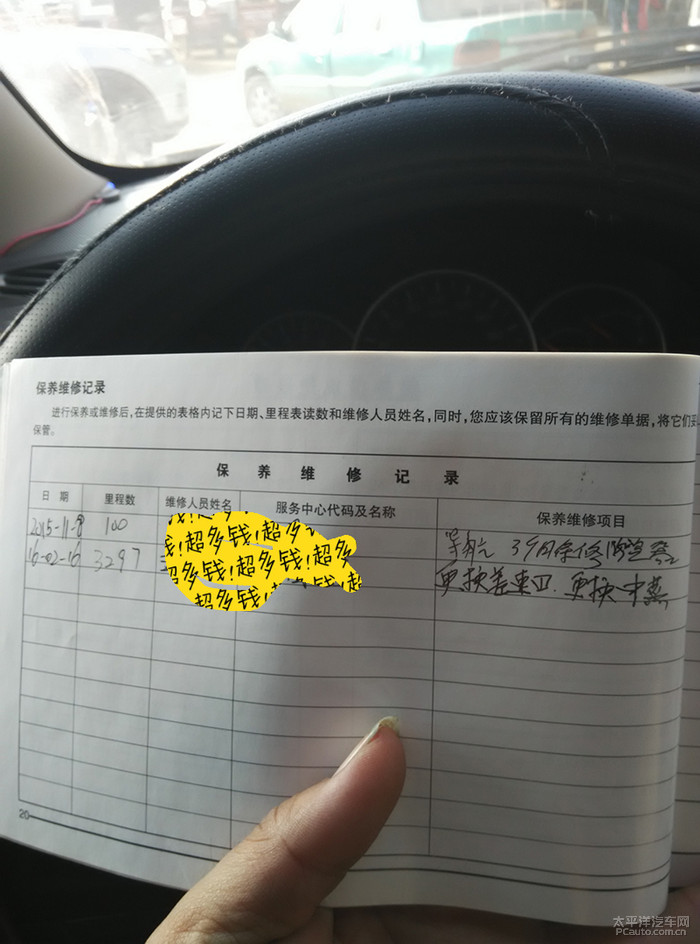 保养维修记录
进行保养或维修后,在提供的表格内记下日期、里程表读数和维修人员姓名,同时,您应该保留所有的维修单据,将它们
保管。
保养维修记录
日期 里程数 维修人员姓名 服务中心代码及名称 保养维修项目
2015-11-8 100 导航
16-02-16 3297 更换差速 更换
钱!超多
钱!超多钱!超多
超多钱!超多钱!超
超多钱! 钱!超
20
太平洋汽车网
PCauto.com.cn